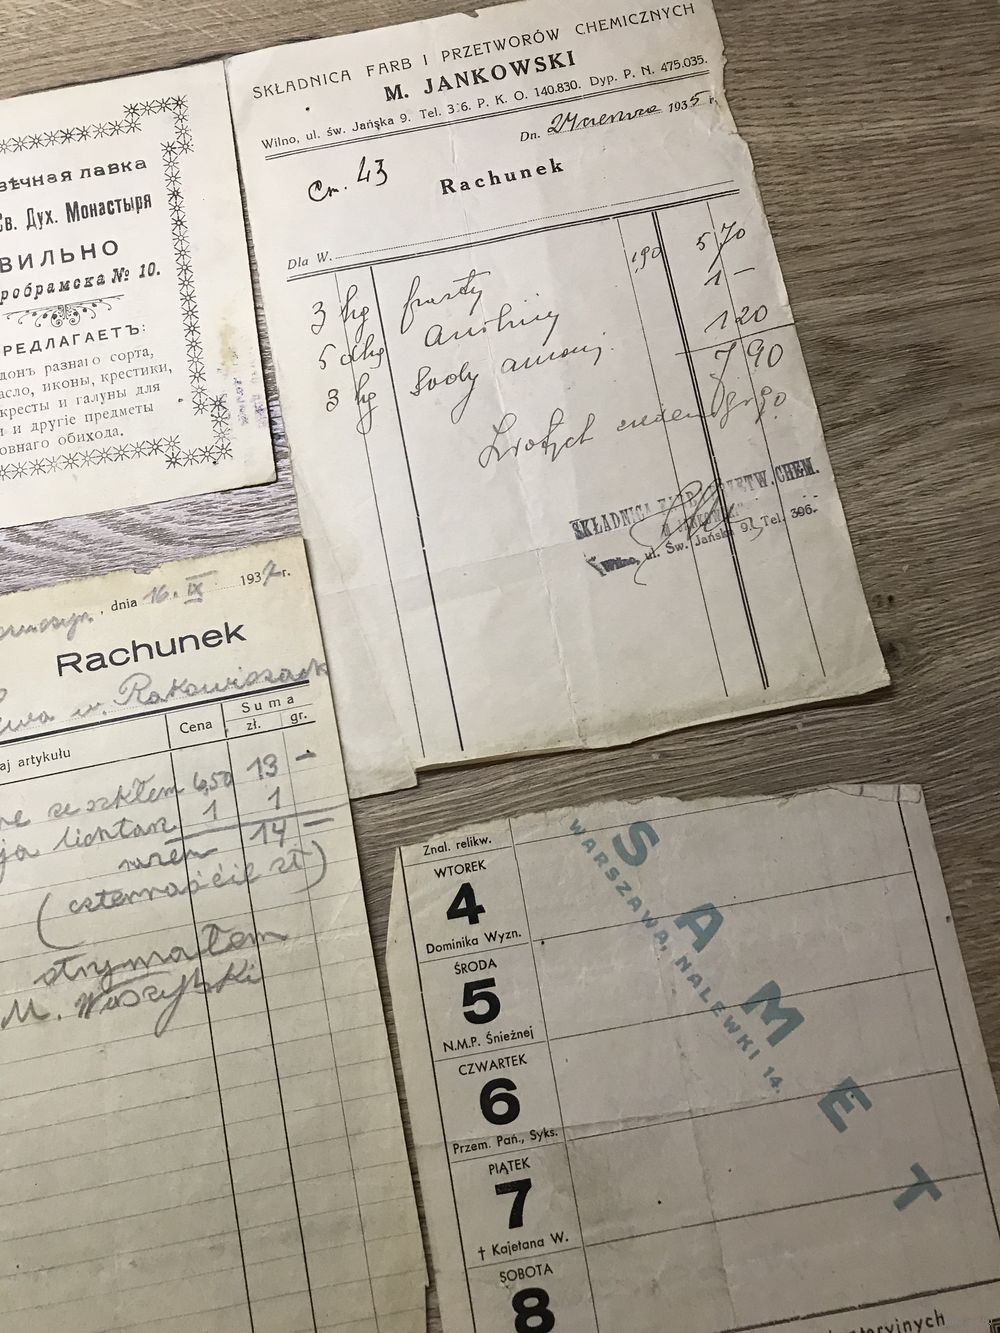 SKŁADNICA FARB I PRZETWORÓW CHEMICZNYCH
M. JANKOWSKI
Wilno, ul. św. Jańska 9. Tel. 3:6. P. K. O. 140.830. Dyp. P. N. 475.035.
Dn. 24 czerwca 1935 r.
43
Rachunek
Dla W.
3 kg ,90 5 70
5 dkg aniliny 1 —
3 kg Sody amonj. 1 20
7 90
Złotych siedem gr 90
SKŁADNICA CHEM.
Wilno, ul. Św. Jańska 9. Tel. 306.
ѣчная лавка
Св. Дух. Монастыря
ВИЛЬНО
робрамска № 10.
РЕДЛАГАЕТЪ:
донъ разнаго сорта,
асло, иконы, крестики,
кресты и галуны для
и и другіе предметы
овнаго обихода.
, dnia 16. IX 1937 r.
Rachunek
w. Rakowiszach
aj artykułu Cena Suma
zł. gr.
ne ze szkłem 6,50 13 —
ja lichtarz 1 1
razem 14 =
(czternaście zł)
otrzymałem
M.
Znal. relikw.
WTOREK
4
Dominika Wyzn.
ŚRODA
5
N.M.P. Śnieżnej
CZWARTEK
6
Przem. Pań., Syks.
PIĄTEK
7
† Kajetana W.
SOBOTA
8
SAMET
WARSZAWA, NALEWKI 14.